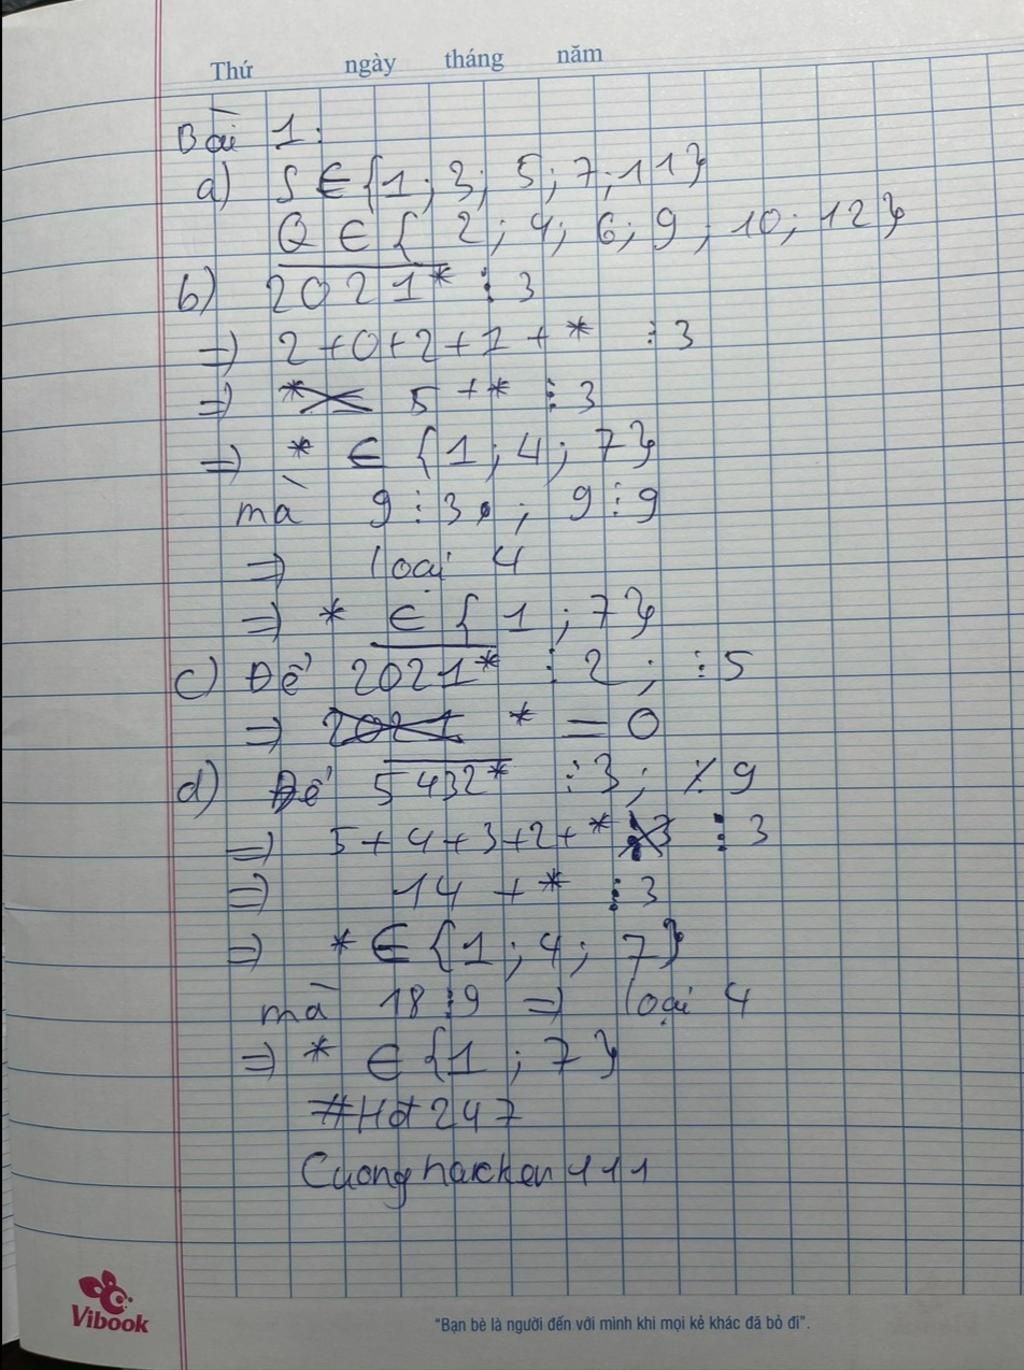 Thứ ngày tháng năm
Bài 1.
a) S ∈ {1; 3; 5; 7; 11}
Q ∈ { 2; 4; 6; 9; 10; 12}
b) 2021* ⋮ 3
=> 2+0+2+1+* ⋮ 3
=> * 5 +* ⋮ 3
=> * ∈ {1; 4; 7}
mà 9 ⋮ 3 ; 9 ⋮ 9
=> loại 4
=> * ∈ { 1; 7}
c) Để 2021* ⋮ 2 ; ⋮ 5
=> 2021 * = 0
d) Để 5432* ⋮ 3; ⋮̸ 9
=> 5+4+3+2+* ⋮ 3 ⋮ 3
=> 14 + * ⋮ 3
=> * ∈ {1; 4; 7}
mà 18 ⋮ 9 => loại 4
=> * ∈ {1; 7}
#Hd247
Cuonghacker111
Vibook
"Bạn bè là người đến với mình khi mọi kẻ khác đã bỏ đi".